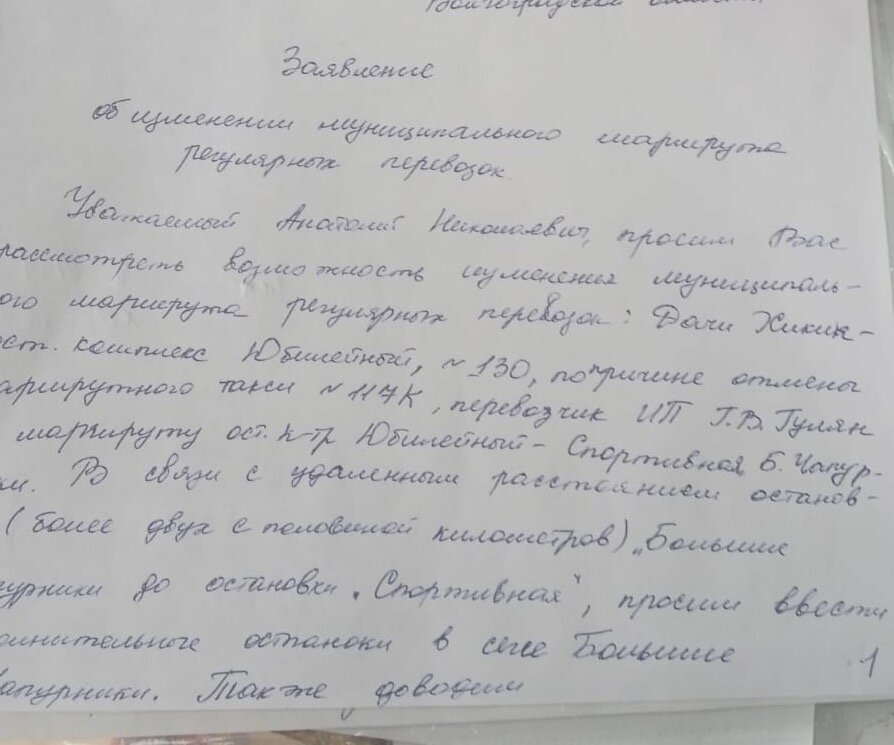 Волгоградской области.
Заявление
об изменении муниципального маршрута
регулярных перевозок
Уважаемый Анатолий Николаевич, просим Вас
рассмотреть возможность изменения муниципаль-
ого маршрута регулярных перевозок: Дачи Хикик-
ост. комплекс Юбилейный, ~130, по причине отмены
аршрутного такси ~117К, перевозчик ИП Г.В. Гулян
маршруту ост. к-тр Юбилейный - Спортивная, Б. Чапур-
ки. В связи с удаленным расстоянием останов-
(более двух с половиной километров) „Большие
пурники до остановки „Спортивная", просим ввести
олнительные останоки в селе Большие
Чапурники. Также доводим
1